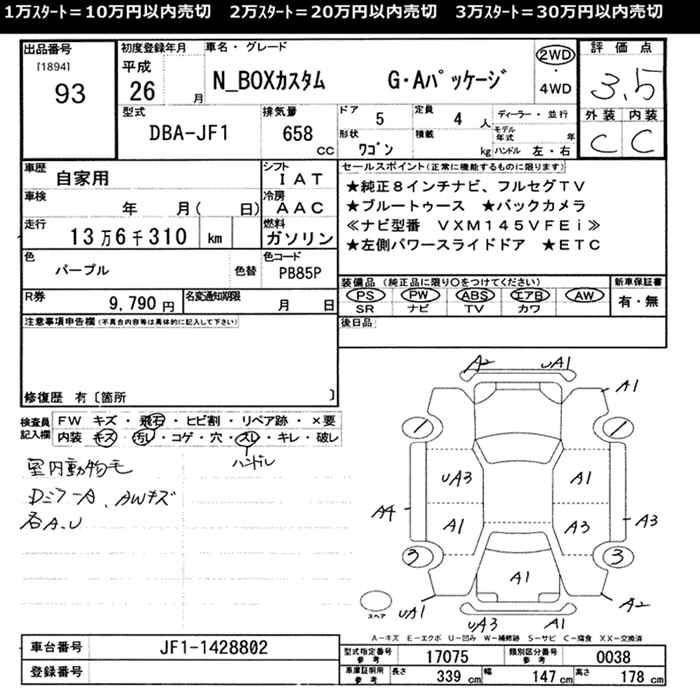 1万スタート＝10万円以内売切　2万スタート＝20万円以内売切　3万スタート＝30万円以内売切
出品番号
[1894]
93
初度登録年月
平成
26 月
車名・グレード
N_BOXカスタム　G・Aパッケージ
2WD
・
4WD
評価点
3.5
外装 内装
C C
型式
DBA-JF1
排気量
658 cc
ドア 5
定員 4 人
形状 ワゴン
積載 kg
ディーラー・並行
モデル年式 年
ハンドル 左・右
車歴 自家用
シフト IAT
車検 年 月( 日)
冷房 AAC
走行 13万6千310 km
燃料 ガソリン
色 パープル 色替
色コード PB85P
R券 9,790 円
名変通知期限 月 日
セールスポイント(正常に機能するものに限ります)
★純正8インチナビ、フルセグTV
★ブルートゥース ★バックカメラ
≪ナビ型番 VXM145VFEi≫
★左側パワースライドドア ★ETC
装備品(純正品に限り○をつけてください)
PS PW ABS エアB AW
SR ナビ TV カワ
新車保証書
有・無
後日品
注意事項申告欄(不具合内容等は具体的に記入して下さい)
修復歴 有〔箇所 〕
検査員記入欄
FW キズ・飛石・ヒビ割・リペア跡・×要
内装 キズ・汚レ・コゲ・穴・スレ・キレ・破レ
ハンドル
室内動物毛
AWキズ
各A.U
A2 UA1
A1
1 1
UA3 A1
A4 A1 A3 A3
3 3
A1
スペア
UA1 UA3 A1 A2
A－キズ E－エクボ U－凹み W－補修跡 S－サビ C－腐食 XX－交換済
車台番号 JF1-1428802
登録番号
型式指定番号 参考 17075
類別区分番号 参考 0038
車庫証明用 参考 長さ 339 cm 幅 147 cm 高さ 178 cm